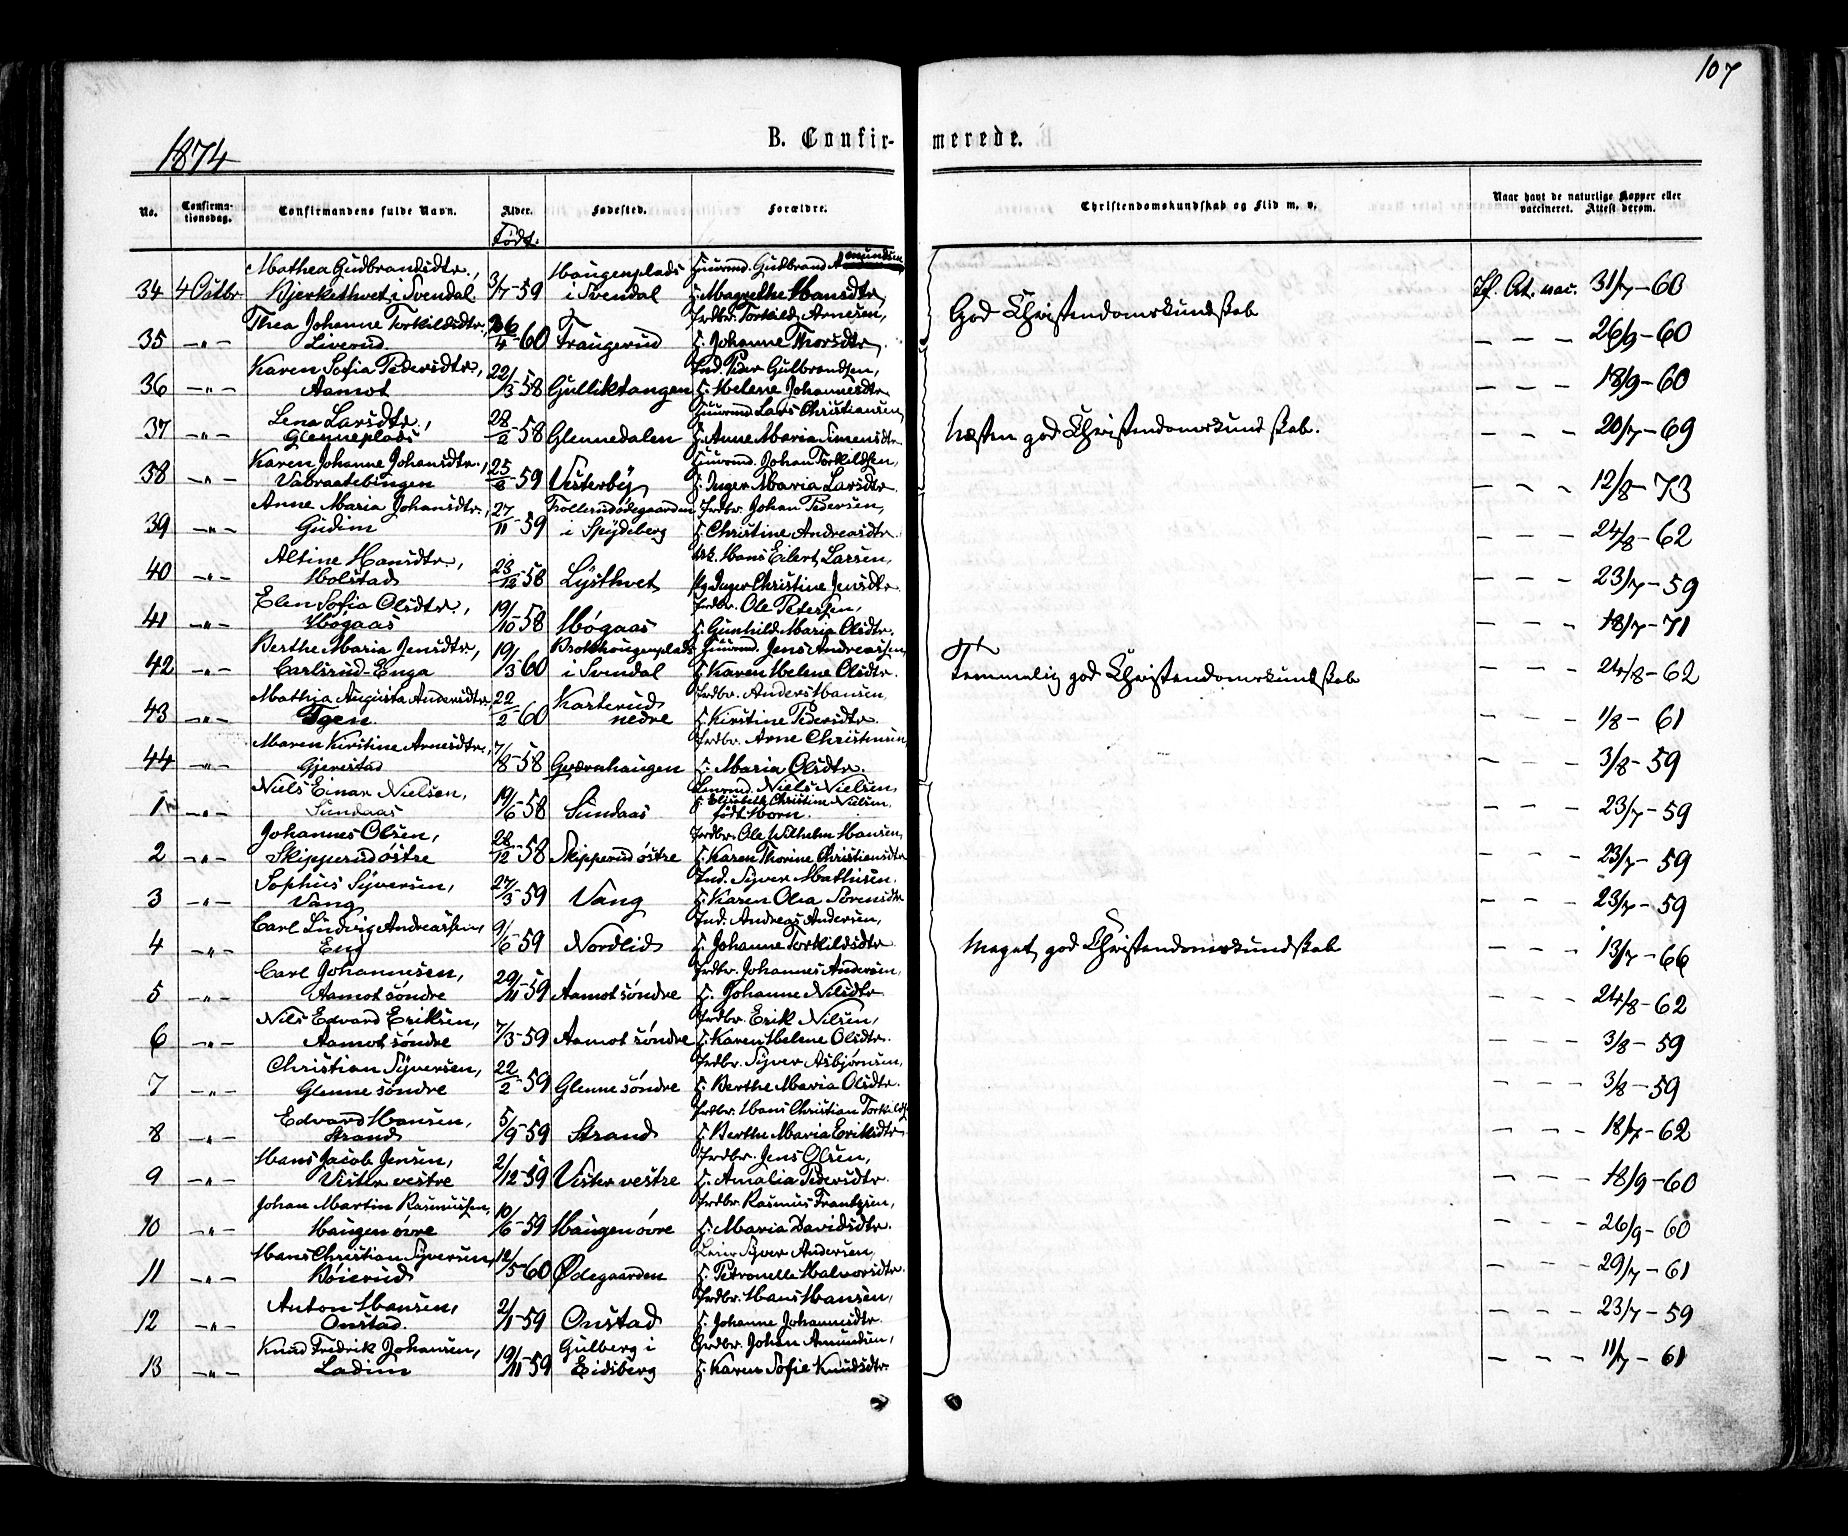 107
1874
B. Confir-
merede.
No.
Confirma-
tionsdag.
Confirmandens fulde Navn.
Alder.
Født.
Fødested.
Forældre.
Christendomskundskab og Flid m. v.
Naar havt de naturlige Kopper eller
vaccineret. Attest derom.
Mathea Gudbrandsdtr., Haugenplads Huusmd. Gudbrand Amundsen
34 4 Ostbr. Bjerkethvet i Svendal 3/7-59 i Svendal H. Magrethe Hansdtr. If. At. vac. 31/7-60
God Christendomskundskab
Thea Johanne Torkildsdtr., Grdbr. Torkild Arnesen,
35 -"- Liverud 26/4-60 Traugerud H. Johanne Thorsdtr. - - - 26/9-60
Karen Sofia Pedersdtr., Ind. Peder Gulbrandsen,
36 -"- Aamot 22/3-58 Gulliktangen H. Helene Johannesdtr. - - - 18/9-60
Lena Larsdtr., Huusmd. Lars Christiansen,
37 -"- Glenneplads 28/2-58 Glennedalen H. Anne Maria Simensdtr. - - - 20/7-69
Næsten god Christendomskundskab.
Karen Johanne Johansdtr., Huusmd. Johan Torkildsen,
38 -"- Vabraatebingen 25/6-59 Visterby H. Inger Maria Larsdtr. - - - 12/8-73
Anne Maria Johansdtr., Grdbr. Johan Pedersen,
39 -"- Gudim 27/11-59 i Spydeberg H. Christine Andreasdtr. - - - 24/8-62
Altine Hansdtr., Hans Eilert Larsen,
40 -"- Holstad 23/12-58 Lysthvet Pg. Inger Christine Jensdtr. - - - 23/7-59
Elen Sofia Olsdtr., Grdbr. Ole Petersen,
41 -"- Høgaas 19/10-58 Høgaas H. Gunhild Maria Olsdtr. - - - 18/7-71
Berthe Maria Jensdtr., Huusmd. Jens Andreassen,
42 -"- Carlsrud-Enga 19/3-60 i Svendal H. Karen Helene Olsdtr. - - - 24/8-62
Temmelig god Christendomskundskab
Mathia Augusta Andersdtr. Karterud Grdbr. Anders Hansen,
43 -"- Igen. 22/2-60 nedre H. Kirstine Pedersdtr. - - - 1/8-61
Maren Kirstine Arnesdtr., Grdbr. Arne Christensen,
44 -"- Gjerstad 7/8-58 Qværnhaugen H. Maria Olsdtr. - - - 3/8-59
Niels Einar Nielsen, Niels Nielsen,
1 -"- Sundaas 19/6-58 Sundaas H. Elisabeth Christine Nielsen, - - - 23/7-59
født Horn.
Johannes Olsen, Grdbr. Ole Wilhelm Hansen,
2 -"- Skipperud østre 28/12-58 Skipperud østre H. Karen Thorine Christiansdtr. - - - 23/7-59
Sophus Syversen, Ind. Syver Mathisen,
3 -"- Vang 27/3-59 Vang H. Karen Olea Sørensdtr. - - - 23/7-59
Carl Ludvig Andreassen, Ind. Andreas Andersen,
4 -"- Eng 9/6-59 Nordlid H. Johanne Torkildsdtr. - - - 13/7-66
Meget god Christendomskundskab
Carl Johannesen, Grdbr. Johannes Andersen,
5 -"- Aamot søndre 29/11-59 Aamot søndre H. Johanne Nilsdtr. - - - 24/8-62
Nils Edvard Eriksen, Grdbr. Erik Nilsen,
6 -"- Aamot søndre 7/3-59 Aamot søndre H. Karen Helene Olsdtr. - - - 3/8-59
Christian Syversen, Grdbr. Syver Asbjørnsen,
7 -"- Glenne søndre 22/2-59 Glenne søndre H. Berthe Maria Olsdtr. - - - 3/8-59
Edvard Hansen, Grdbr. Hans Christian Torkilds.
8 -"- Strand 5/9-59 Strand H. Berthe Maria Eriksdtr. - - - 18/7-62
Hans Jacob Jensen, Grdbr. Jens Olsen,
9 -"- Vister vestre 2/12-59 Vister vestre H. Amalia Pedersdtr. - - - 18/9-60
Johan Martin Rasmussen, Grdbr. Rasmus Frantzen,
10 -"- Haugen øvre 10/6-59 Haugen øvre H. Maria Davidsdtr. - - - 26/9-60
Hans Christian Syversen, Syver Andersen,
11 -"- Bøierud 12/5-60 Ødegaarden H. Petronelle Halvorsdtr. - - - 29/7-61
Anton Hansen, Grdbr. Hans Hansen,
12 -"- Onstad. 2/1-59 Onstad H. Johanne Johannesdtr. - - - 23/7-59
Knud Fredrik Johansen, Gulberg i Grdbr. Johan Amundsen,
13 -"- Ladim 19/11-59 Eidsberg H. Karen Sofie Knudsdtr. - - - 11/7-61